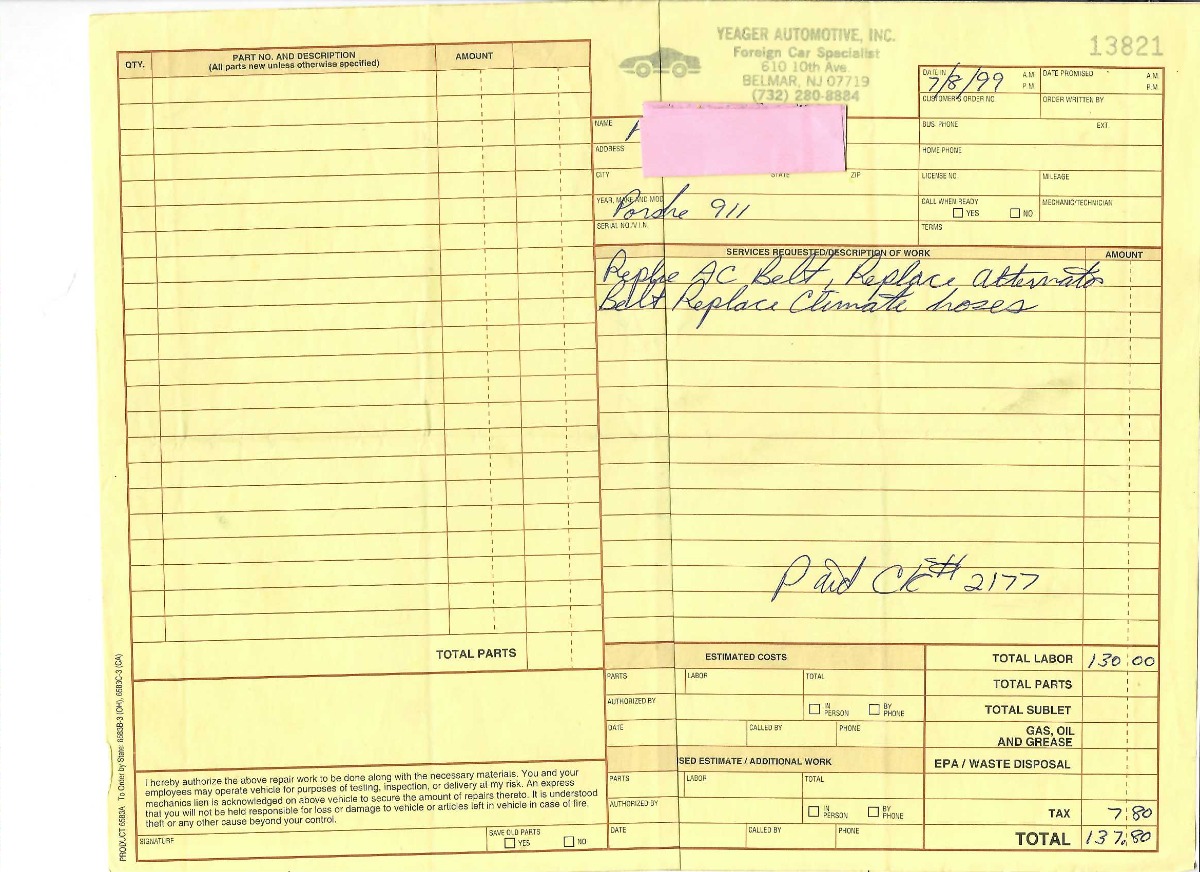 YEAGER AUTOMOTIVE, INC.
Foreign Car Specialist
610 10th Ave.
BELMAR, NJ 07719
(732) 280-8884
13821
QTY.
PART NO. AND DESCRIPTION
(All parts new unless otherwise specified)
AMOUNT
TOTAL PARTS
DATE IN 7/8/99 A.M. P.M.
DATE PROMISED A.M. P.M.
CUSTOMER'S ORDER NO.
ORDER WRITTEN BY
NAME
BUS. PHONE EXT.
ADDRESS
HOME PHONE
CITY STATE ZIP
LICENSE NO.
MILEAGE
YEAR, MAKE AND MOD
Porshe 911
CALL WHEN READY
YES NO
MECHANIC/TECHNICIAN
SERIAL NO./V.I.N.
TERMS
SERVICES REQUESTED/DESCRIPTION OF WORK
AMOUNT
AC Belt, Replace Alternator
Belt Replace Climate hoses
Paid CK# 2177
ESTIMATED COSTS
PARTS LABOR TOTAL
AUTHORIZED BY IN PERSON BY PHONE
DATE CALLED BY PHONE
SED ESTIMATE / ADDITIONAL WORK
PARTS LABOR TOTAL
AUTHORIZED BY IN PERSON BY PHONE
DATE CALLED BY PHONE
TOTAL LABOR 130.00
TOTAL PARTS
TOTAL SUBLET
GAS, OIL
AND GREASE
EPA / WASTE DISPOSAL
TAX 7.80
TOTAL 137.80
I hereby authorize the above repair work to be done along with the necessary materials. You and your
employees may operate vehicle for purposes of testing, inspection, or delivery at my risk. An express
mechanics lien is acknowledged on above vehicle to secure the amount of repairs thereto. It is understood
that you will not be held responsible for loss or damage to vehicle or articles left in vehicle in case of fire,
theft or any other cause beyond your control.
SIGNATURE
SAVE OLD PARTS
YES NO
PRODUCT 6583A To Order by State: 6583B-3 (OH), 6583C-3 (CA)